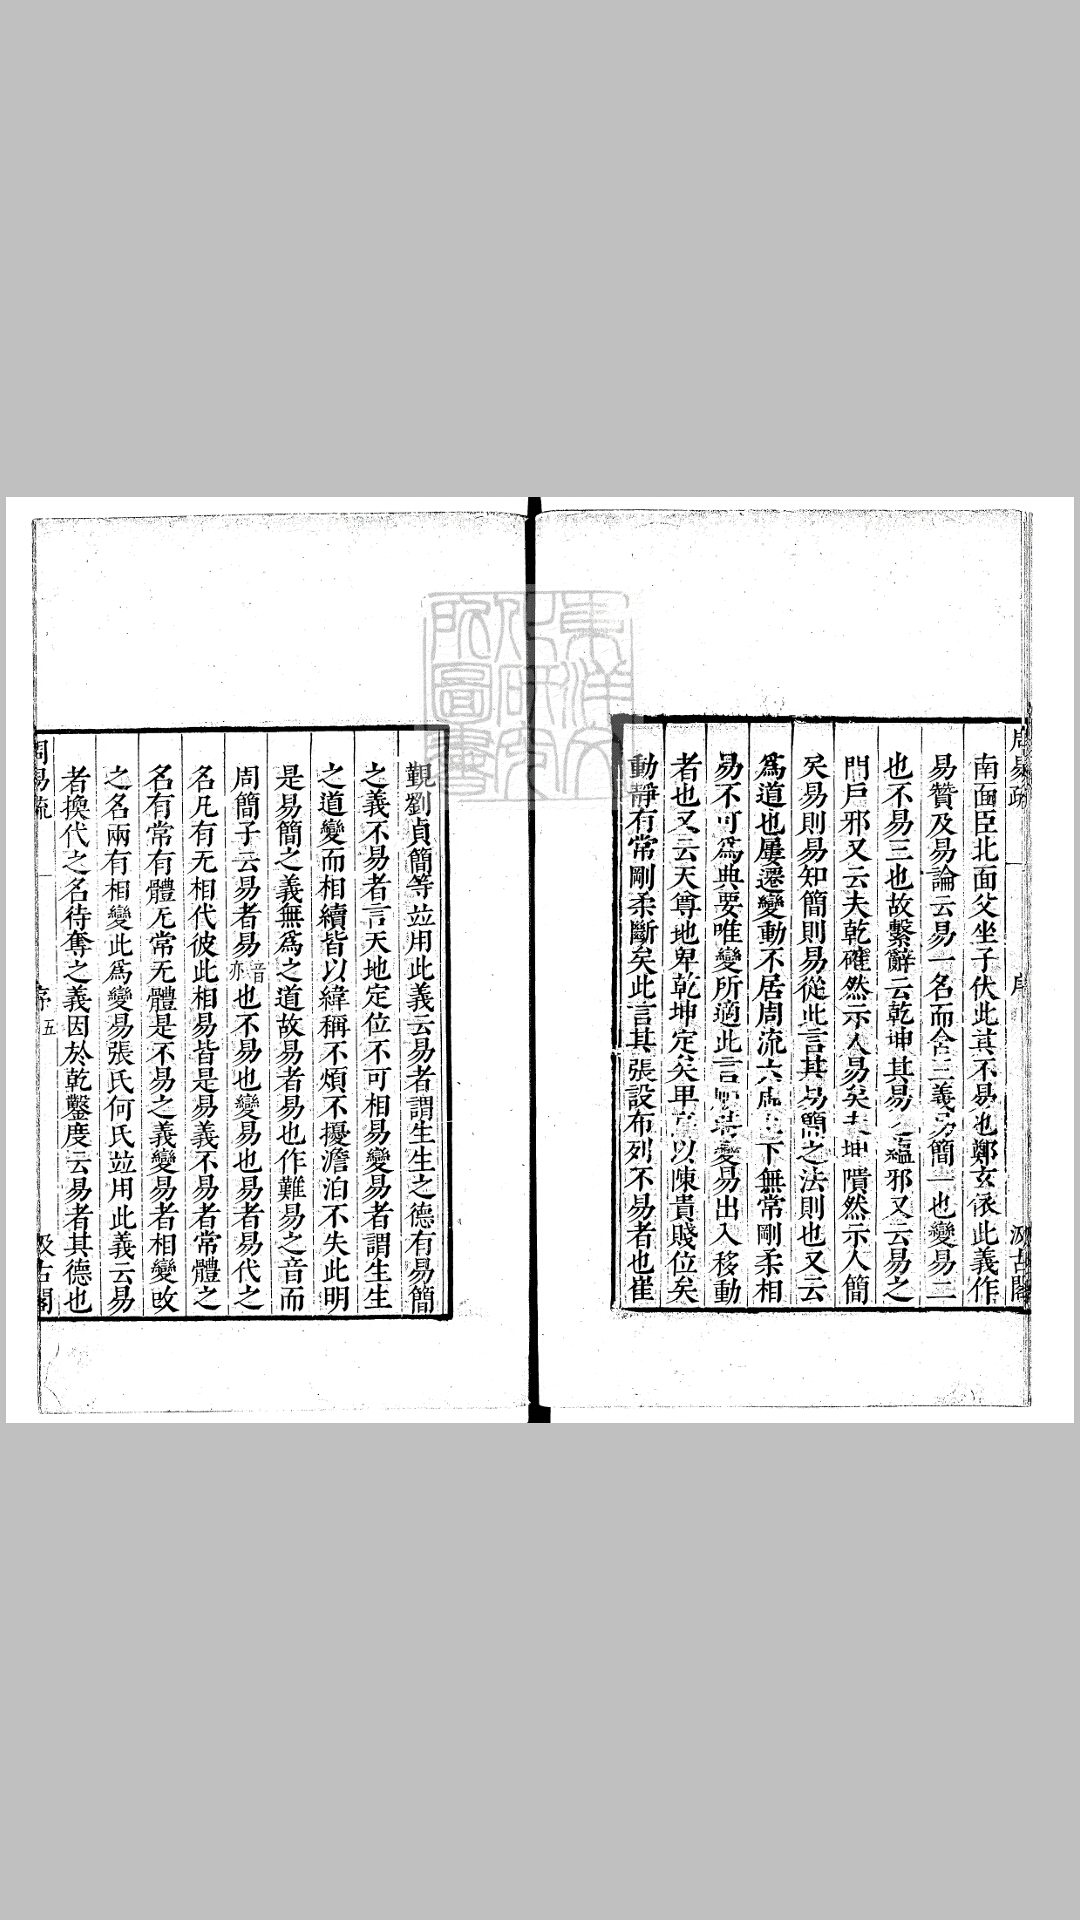 周易疏 序 汲古閣
南面臣北面父坐子伏此其不易也鄭玄依此義作
易贊及易論云易一名而含三義易簡一也變易二
也不易三也故繫辭云乾坤其易之蘊邪又云易之
門戶邪又云夫乾確然示人易矣夫坤隤然示人簡
矣易則易知簡則易從此言其易簡之法則也又云
爲道也屢遷變動不居周流六虛上下無常剛柔相
易不可爲典要唯變所適此言順時變易出入移動
者也又云天尊地卑乾坤定矣卑高以陳貴賤位矣
動靜有常剛柔斷矣此言其張設布列不易者也崔
覲劉貞簡等竝用此義云易者謂生生之德有易簡
之義不易者言天地定位不可相易變易者謂生生
之道變而相續皆以緯稱不煩不擾澹泊不失此明
是易簡之義無爲之道故易者易也作難易之音而
周簡子云易者易音亦也不易也變易也易者易代之
名凡有无相代彼此相易皆是易義不易者常體之
名有常有體无常无體是不易之義變易者相變改
之名兩有相變此爲變易張氏何氏竝用此義云易
者換代之名待奪之義因於乾鑿度云易者其德也
周易疏 序 五 汲古閣
東洋文化研究所圖書